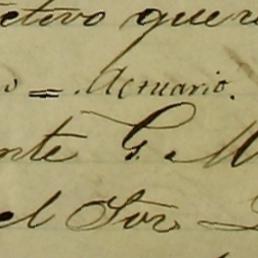 ctivo quer
o = Actuario.
nte G. M
el Sor